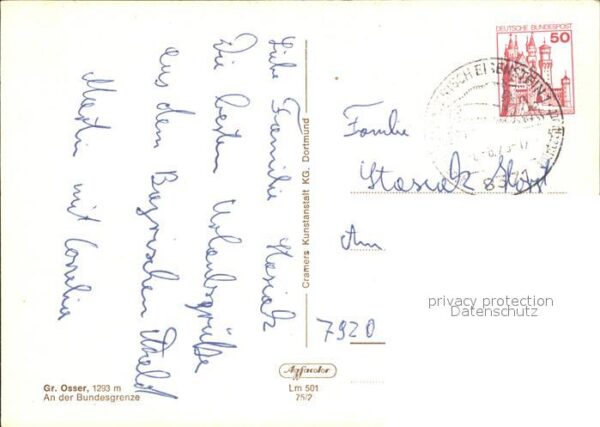 Liebe Familie Stasiak
Die besten Urlaubsgrüße
aus dem Bayrischen Wald
Martin mit Cornelia
Gr. Osser, 1293 m
An der Bundesgrenze
Cramers Kunstanstalt KG, Dortmund
Agfacolor
Lm 501
75/2
DEUTSCHE BUNDESPOST
50
RISCH EISENSTEIN 1
Familie
Stasiak
Am
7920
privacy protection
Datenschutz